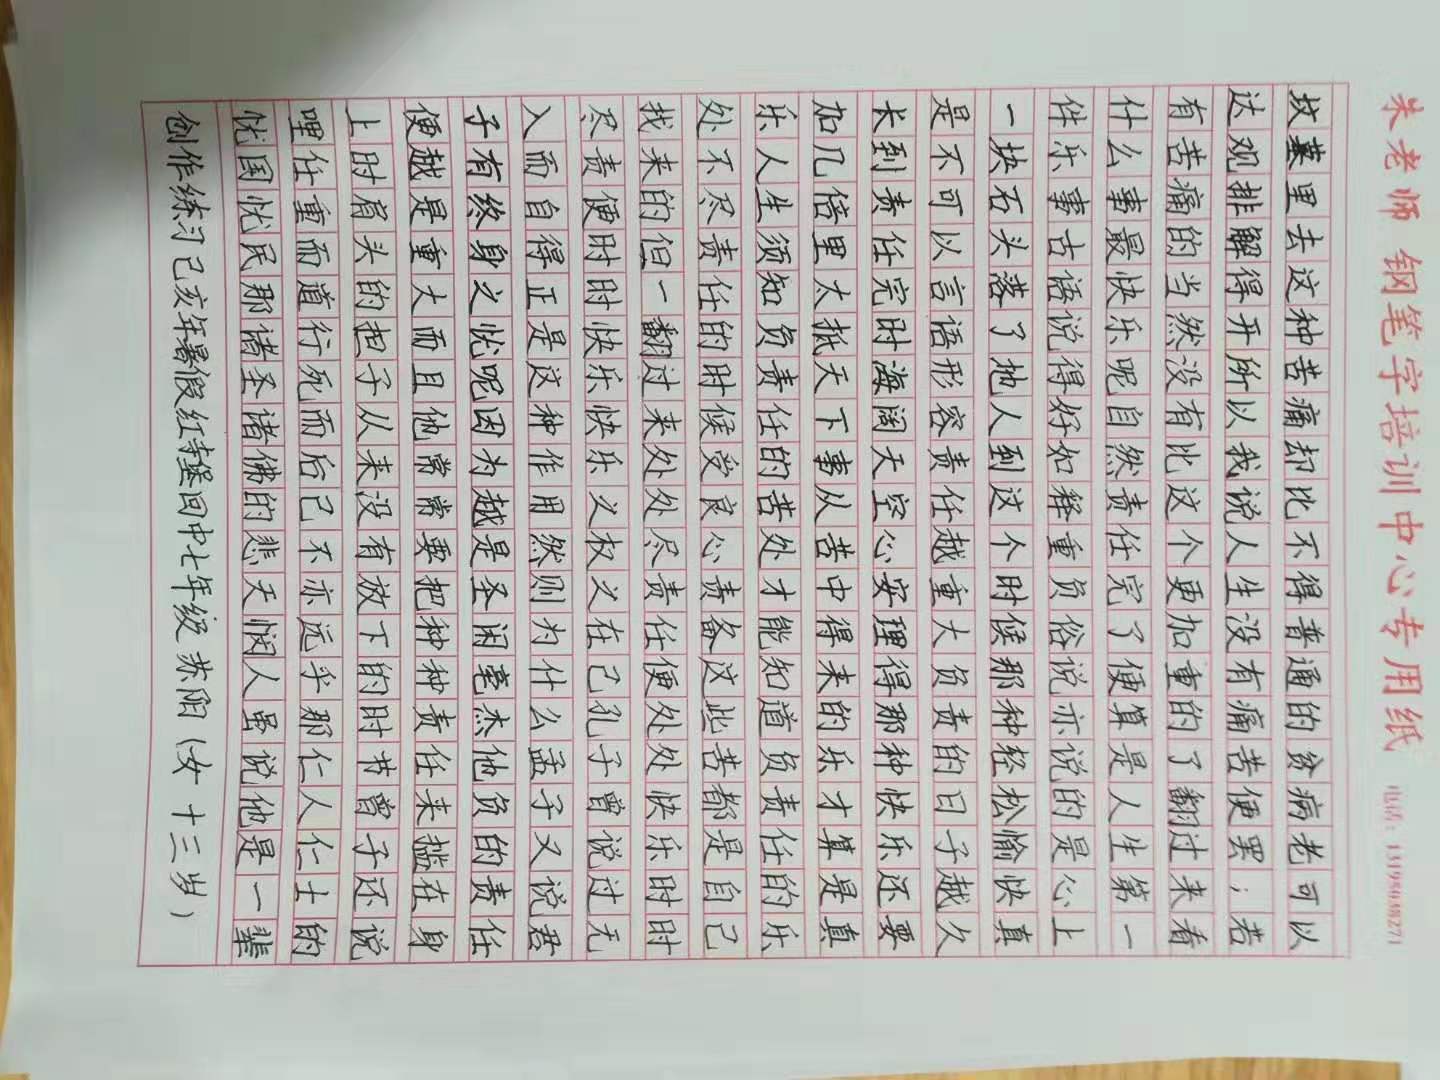 朱老师 钢笔字培训中心专用纸 电话：
坟墓里去这种苦痛却比不得普通的贫病老可以
达观排解得开所以我说人生没有痛苦便罢；若
有苦痛的当然没有比这个更加重的了翻过来看
什么事最快乐呢自然责任完了便算是人生第一
件乐事古语说得好如释重负俗说亦说的是心上
一块石头落了地人到这个时候那种轻松愉快真
是不可以言语形容责任越重大负责的日子越久
长到责任完时海阔天空心安理得那种快乐还要
加几倍里太抵天下事从苦中得来的乐才算是真
乐人生须知负责任的苦处才能知道负责任的乐
处不尽责任的时候受良心责备这些苦都是自己
找来的但一翻过来处处尽责任便处处快乐时时
尽责便时时快乐快乐乂权乂在己孔子曾说过无
入而自得正是这种作用然则为什么孟子又说君
子有终身之忧呢因为越是圣闲毫杰他负的责任
便越是重大而且他常常要把种种责任来揽在身
上时肩头的担子从来没有放下的时节曾子还说
哩任重而道行死而后己不亦远乎那仁人仁士的
忧国忧民那诸圣诸佛的悲天悯人虽说他是一辈
创作练习己亥年暑假红寺堡回中七年级 苏阳（女 十三岁）